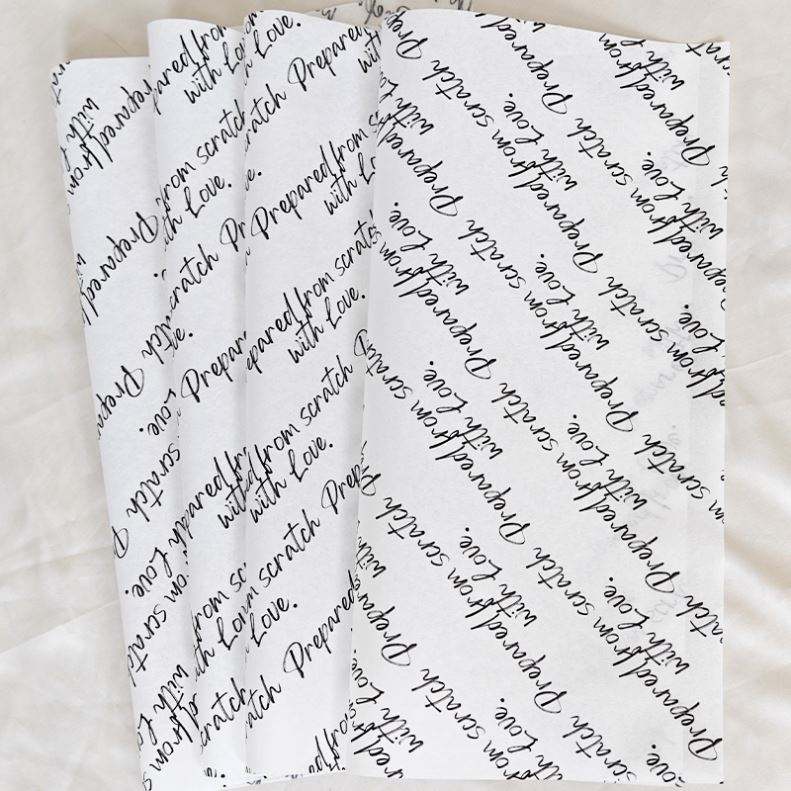 Prepared from scratch
with Love.
Prepared from scratch
with Love.
Prepared from scratch
with Love.
Prepared from scratch
with Love.
Prepared from scratch
with Love.
Prepared from scratch
with Love.
Prepared from scratch
with Love.
Prepared from scratch
with Love.
Prepared from scratch
with Love.
Prepared from scratch
with Love.